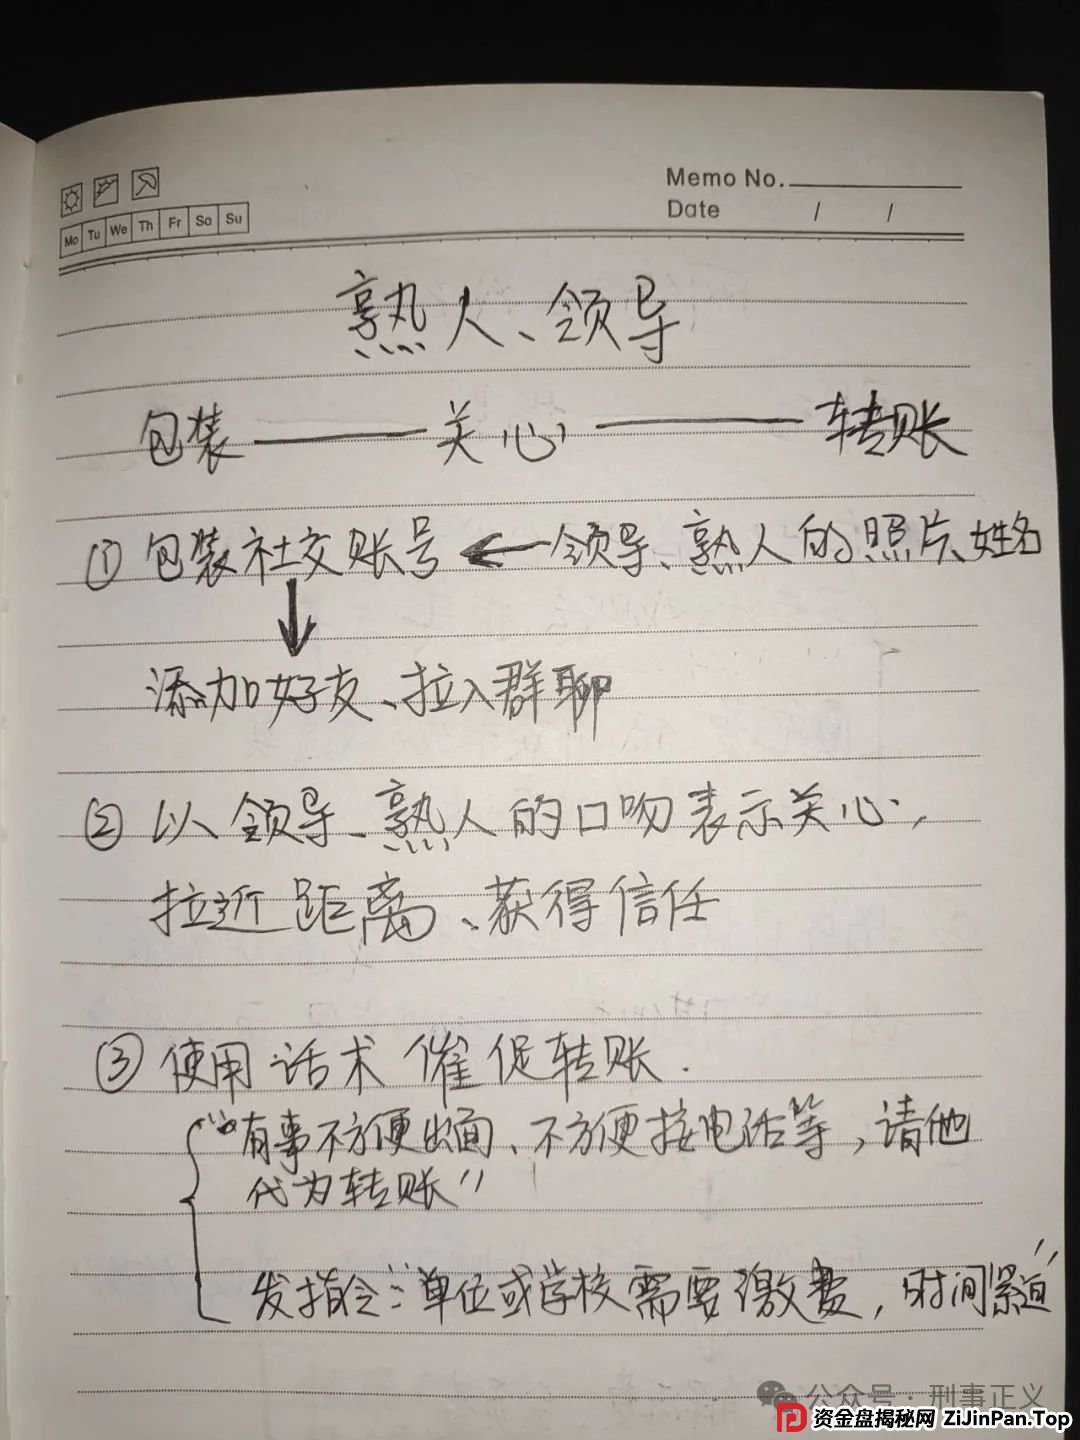 Memo No.
Date / /
Mo Tu We Th Fr Sa Su
熟人、领导
包装——关心——转账
① 包装社交账号 ← 领导、熟人的照片、姓名
↓
添加好友、拉入群聊
② 以领导、熟人的口吻表示关心,
拉近距离、获得信任
③ 使用话术催促转账.
“有事不方便出面、不方便接电话等,请他
代为转账”
发指令:“单位或学校需要缴费,时间紧迫”
公众号·刑事正义
资金盘揭秘网 ZiJinPan.Top